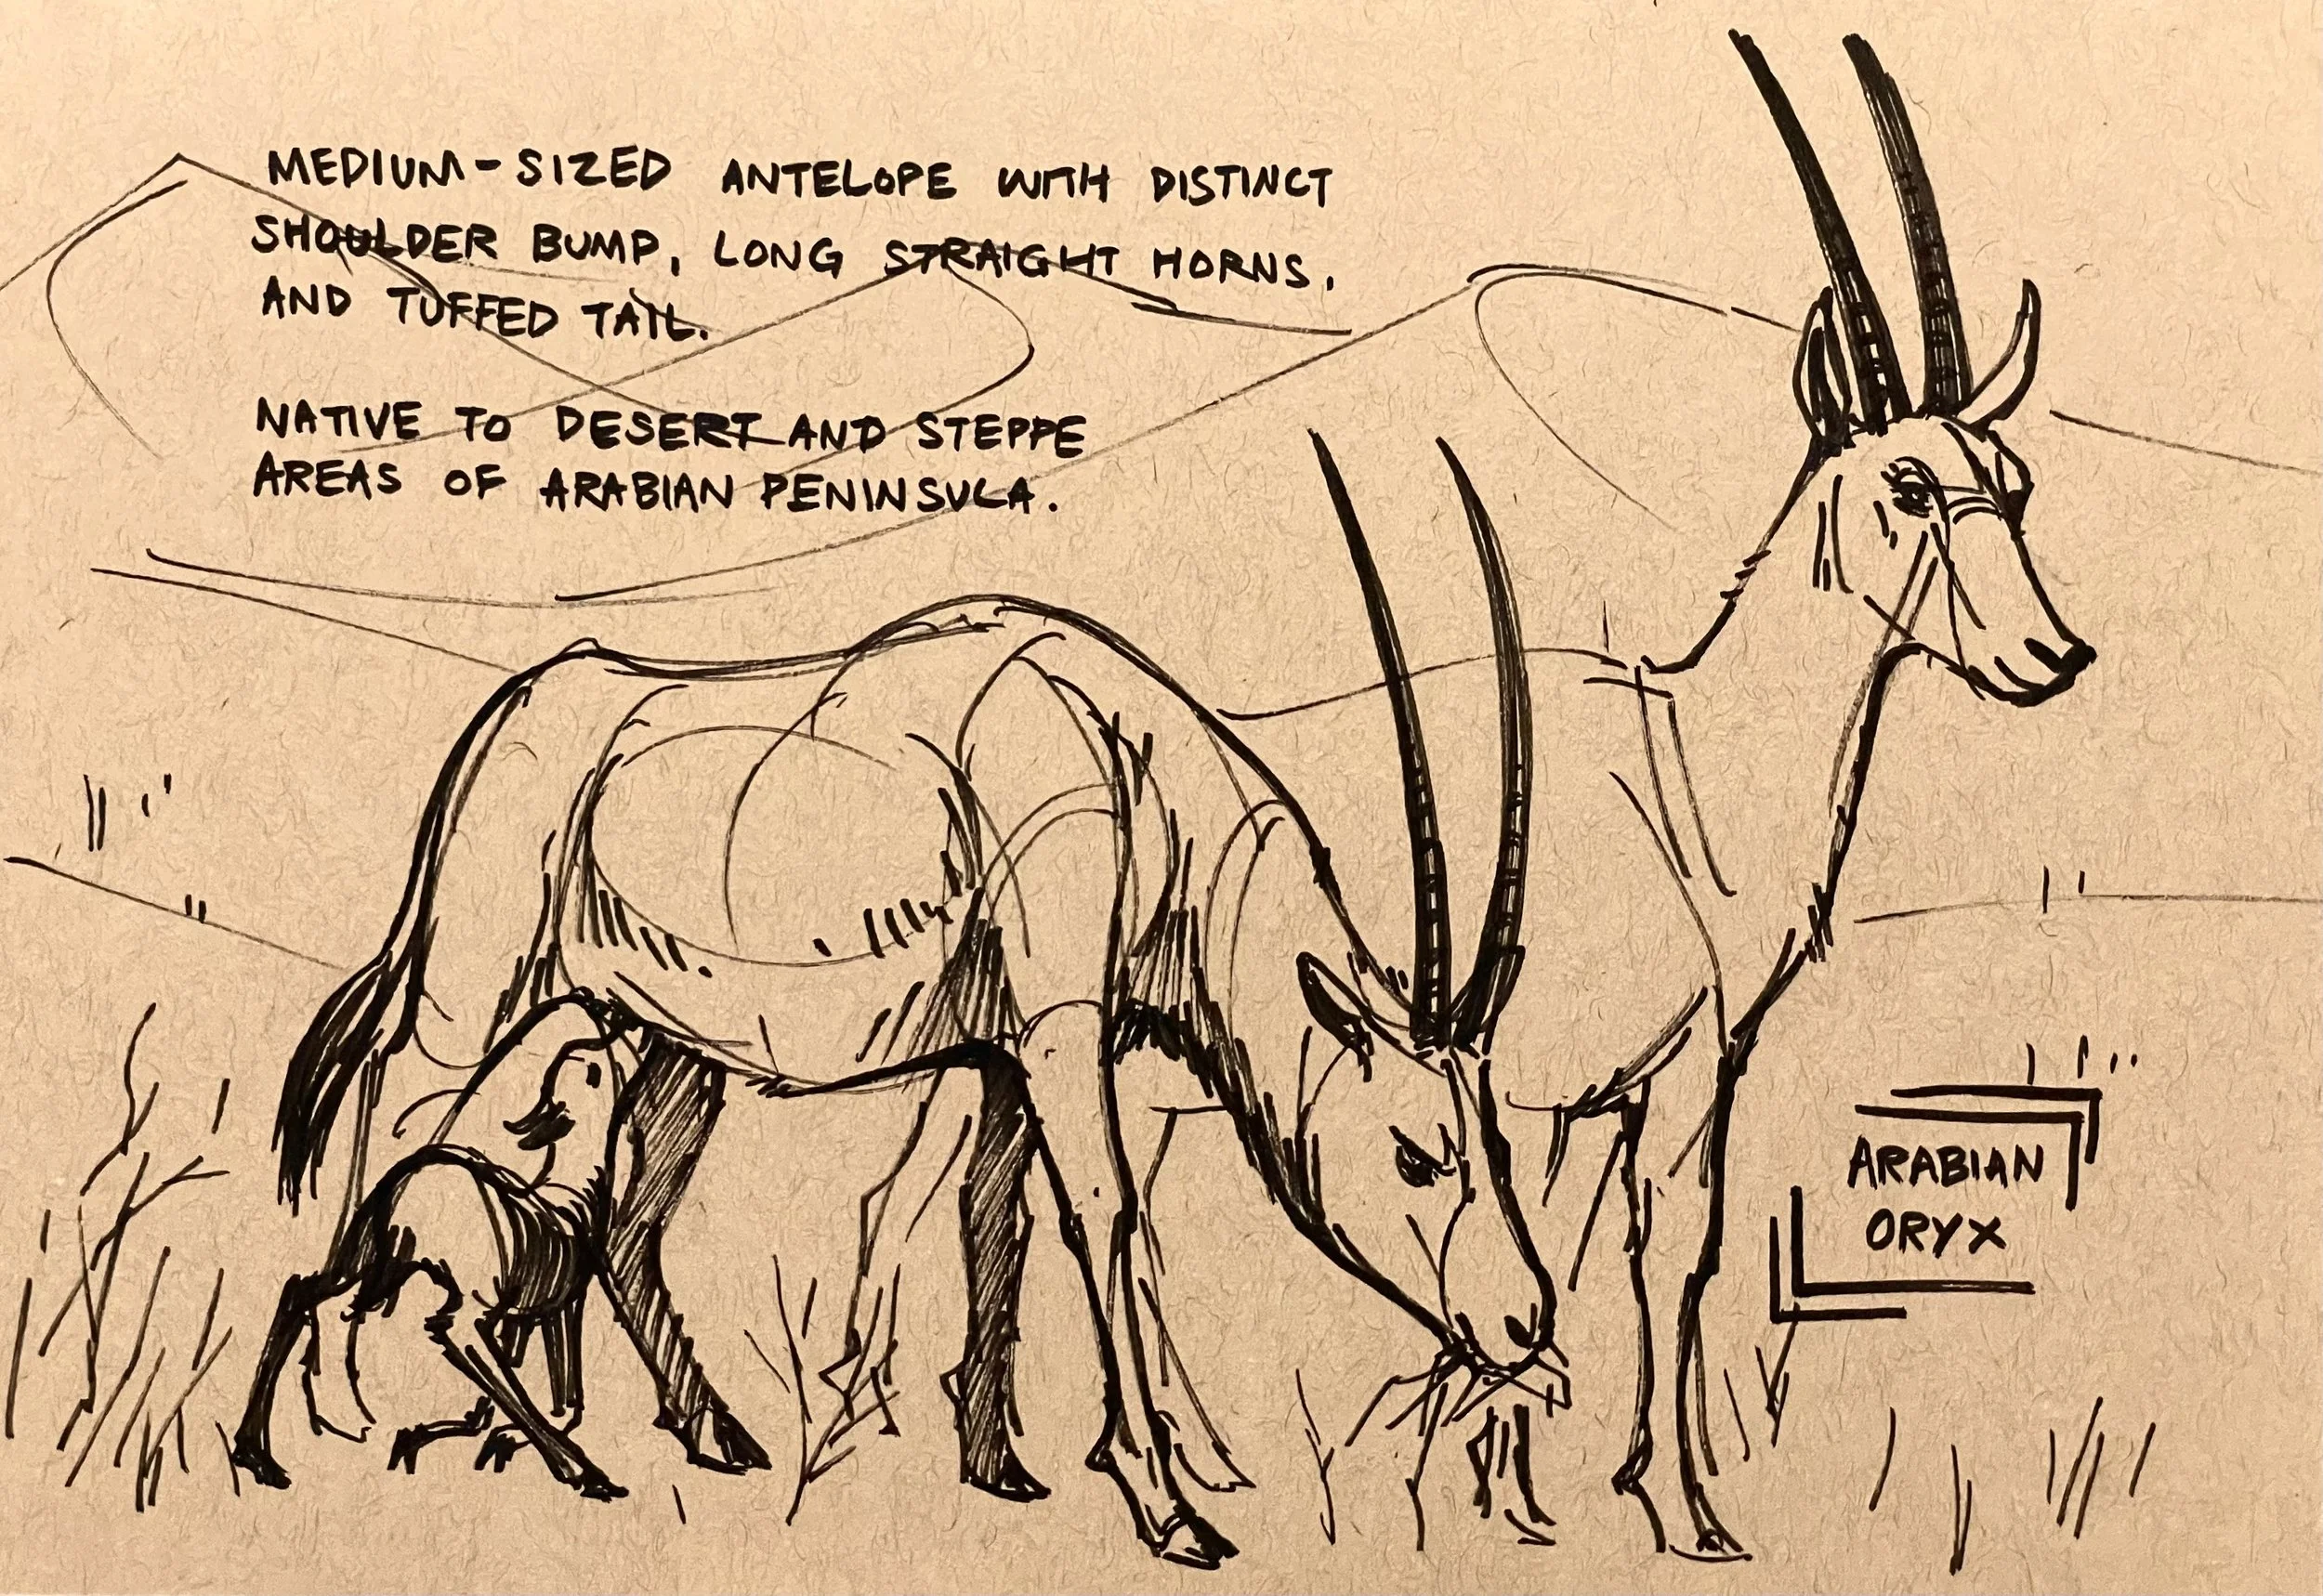 MEDIUM-SIZED ANTELOPE WITH DISTINCT
SHOULDER BUMP, LONG STRAIGHT HORNS,
AND TUFFED TAIL.
NATIVE TO DESERT AND STEPPE
AREAS OF ARABIAN PENINSULA.
ARABIAN
ORYX